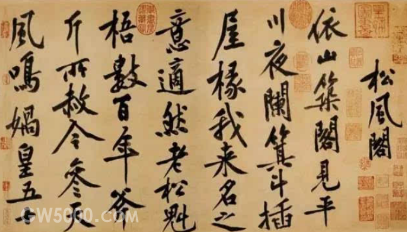 松風閣
依山築閣見平
川夜闌箕斗插
屋椽我來名之
意適然老松魁
梧數百年斧
斤所赦今參天
風鳴媧皇五十
GW5000.com